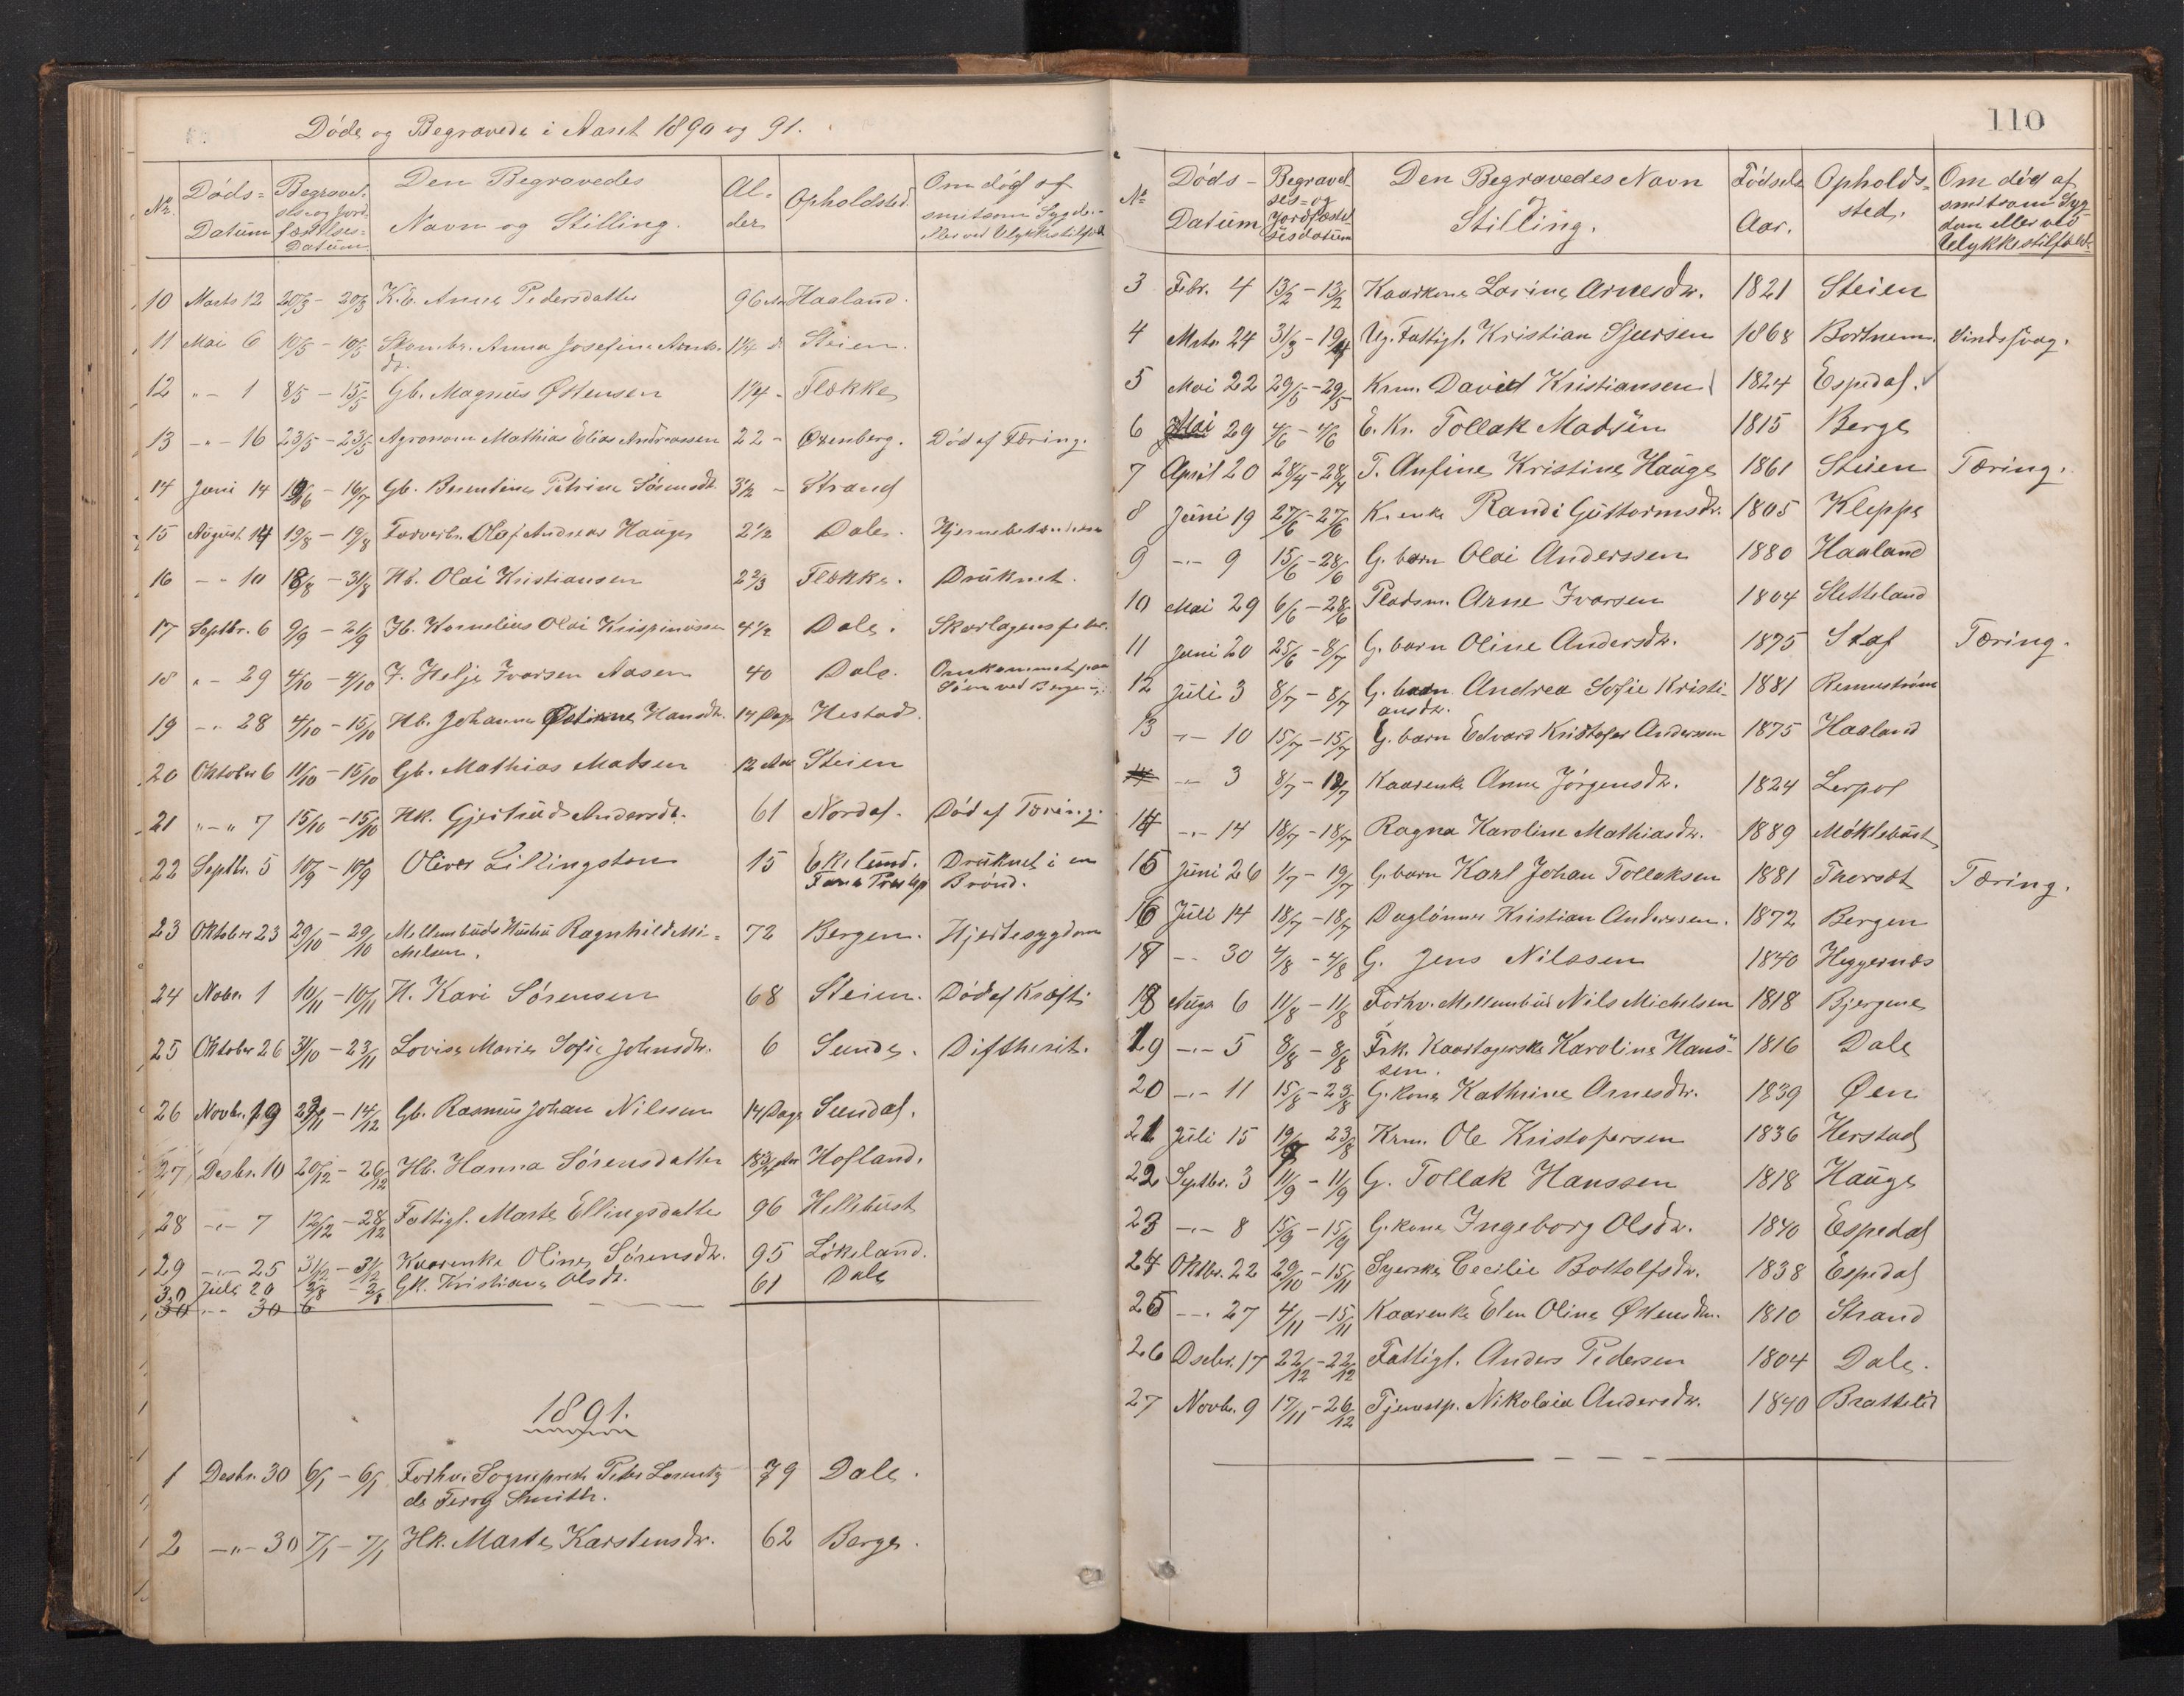 Døde og Begravede i Aaret 1890 og 91.
No. Døds-Datum Begravelses og Jordfæstelses-Datum Den Begravedes Navn og Stilling. Alder Opholdsted. Om død af smitsom Sygdom eller ved Ulykkestilfælde
10 Marts 12 20/3 - 20/3 K.e. Anna Pedersdatter 96 Aar Haaland.
11 Mai 6 10/5 - 10/5 Anna Josefine 1 1/4 Steien.
dr.
12 " - 1 8/5 - 15/5 Gb. Magnus Østensen 1 1/4 - Flekke
13 - " - 16 23/5 - 23/5 Agronom Mathias Elias Andreassen 22 - Oxenberg. Død af Tæring.
14 Juni 14 Gb. Berentine Petrine Sørensdr. 3 1/2 - Strand
15 August 14 19/8 - 19/8 Olaf Andreas Hauge 2 1/2 Dale.
16 - " 10 18/8 - 31/8 Hb. Olai Kristiansen 2 2/3 Flekke. Druknet.
17 Septbr. 6 9/9 - 21/9 Kornelius Olai Krispinussen 4 1/2 Dale. Skarlagensfeber.
18 " - 29 4/10 - 4/10 Helje Ivarsen Aasen 40 Dale. Omkommet paa
Søen ved Bergen
19 - " 28 4/10 - 15/10 Hb. Johanne Hansdr. 14 Dage Hestad.
20 Oktober 6 11/10 - 15/10 Gb. Mathias Madsen 12 Aar Steien
21 " - " 7 15/10 - 15/10 Hk. Gjertrud Andersdr. 61 Nordal. Død af Tæring.
22 Septbr. 5 10/9 - 10/9 Oliver Lillingston 15 Ekelund. Druknet i en
Fana Brønd.
23 Oktober 23 29/10 - 29/10 Mellembuds Hustru Ragnhild Mi-
chelsen. 72 Bergen. Hjertesygdom
24 Nobr. 1 10/11 - 10/11 H. Kari Sørensen 68 Steien. Død af Kræft.
25 Oktober 26 31/10 - 23/11 Lovise Marie Sofie Johnsdr. 6 Sunde. Diftherit.
26 Novbr. 19 29/11 - 14/12 Gb. Rasmus Johan Nilssen 14 Dage Sundal.
27 Desbr. 10 20/12 - 26/12 Hb. Hanna Sørensdatter Hofland.
28 - " - 7 12/12 - 28/12 Fattigl. Marte Ellingsdatter 96 Hellebust
29 - " - 25 31/12 - 31/12 Kaarenke Oline Sørensdr. 95 Løkeland.
30 Juli 20 2/8 - 2/8 Gk. Kristiane Olsdr. 61 Dale
30 - " 30 6
1891.
1 Desbr. 30 6/1 - 6/1 Forhv. Sogneprest Peter Lorentz
de Ferry Smith. 79 Dale.
2 - " - 30 7/1 - 7/1 Hk. Marte Karstensdr. 62 Berge.
110
No Døds-Datum Begravelses- og Jordfæstelsesdatum Den Begravedes Navn Stilling. Fødsels Aar. Opholdssted. Om død af smitsom Sygdom eller ved Ulykkestilfælde
3 Febr. 4 13/2 - 13/2 Kaarkone Larine Arnesdr. 1821 Steien
4 Mrts. 24 31/3 - 19/4 Ug. Fattigl. Kristian Sjursen 1868 Bortnem. Sindssvag.
5 Mai 22 29/5 - 29/5 Krm. David Kristiansen 1824 Espedal.
6 Mai 29 4/6 - 4/6 E. Kr. Tollak Madsen 1815 Berge
7 April 20 28/4 - 28/4 T. Anfine Kristine Hauge 1861 Steien Tæring.
8 Juni 19 27/6 - 27/6 K. enke Randi Guttormsdr. 1805 Kleppe
9 - " - 9 15/6 - 28/6 G. barn Olai Anderssen 1880 Haaland
10 Mai 29 6/6 - 28/6 Pladsm. Arne Ivarsen 1804 Sletteland
11 Juni 20 25/6 - 8/7 G. barn Oline Andersdr. 1875 Skaf Tæring.
12 Juli 3 8/7 - 8/7 G. barn Andrea Sofie Kristi-
ansdr. 1881 Rennestrøm
13 - " - 10 15/7 - 15/7 G. barn Edvard Kristofer Anderssen 1875 Haaland
14 - " 3 8/7 - 18/7 Kaarenke Anne Jørgensdr. 1824
14 - " - 14 18/7 - 18/7 Ragna Karoline Mathiasdr. 1889 Møklebust
15 Juni 26 1/7 - 19/7 G. barn Karl Johan Tollaksen 1881 Tæring.
16 Juli 14 18/7 - 18/7 Daglønner Kristian Anderssen. 1872 Bergen
17 - " 30 4/8 - 4/8 G. Jens Nilssen 1840 Heggernæs
18 Auga 6 11/8 - 11/8 Forhv. Mellembud Nils Michelsen 1818 Bjergene
19 - " - 5 8/8 - 8/8 Frk. Kaartagerske Karoline Hans-
sen. 1816 Dale
20 - " - 11 15/8 - 23/8 G. kone Kathrine Arnesdr. 1839 Øen
21 Juli 15 19/7 23/8 Krm. Ole Kristofersen 1836 Herstad
22 Septbr. 3 11/9 - 11/9 G. Tollak Hanssen 1818 Hauge
23 - " - 8 15/9 - 15/9 G. kone Ingeborg Olsdr. 1840 Espedal
24 Oktbr. 22 29/10 - 15/11 Syerske Cecilie Bottolfsdr. 1838 Espedal
25 - " . 27 4/11 - 15/11 Kaarenke Elen Oline Østensdr. 1810 Strand
26 Dsebr. 17 22/12 - 22/12 Fattigl. Anders Pedersen 1804 Dale.
27 Novbr. 9 17/11 - 26/12 Tjenestp. Nikolaia Andersdr. 1840 Brattelid